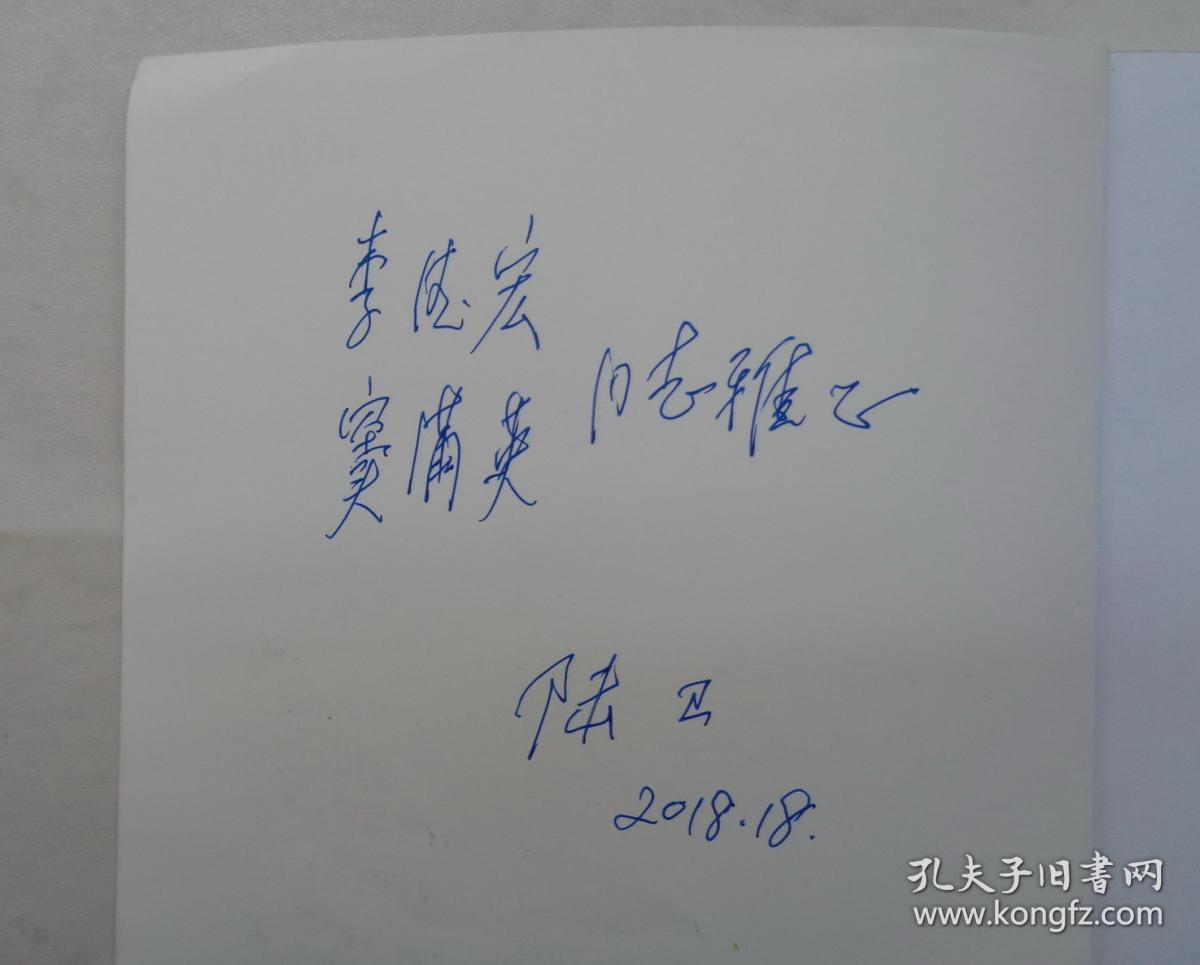 李德宏
窦蒲英
同志雅正
陆卫
2018.18.
孔夫子旧書网
www.kongfz.com